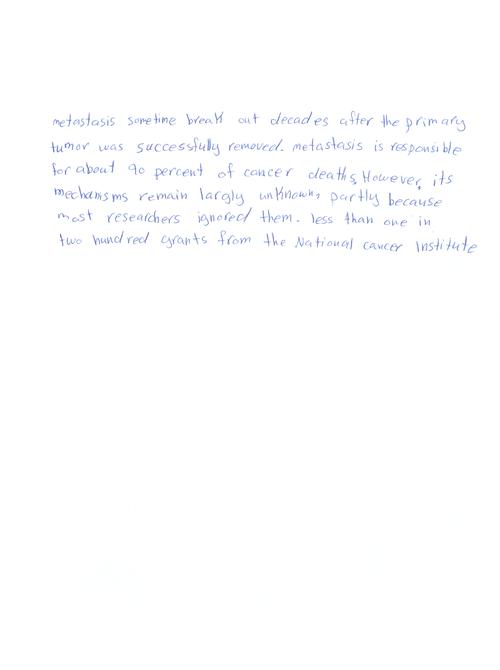 metastasis sometime break out decades after the primary
tumor was successfully removed. metastasis is responsible
for about 90 percent of cancer deaths, However, its
mechanisms remain largely unknown, partly because
most researchers ignored them. less than one in
two hundred grants from the National cancer Institute